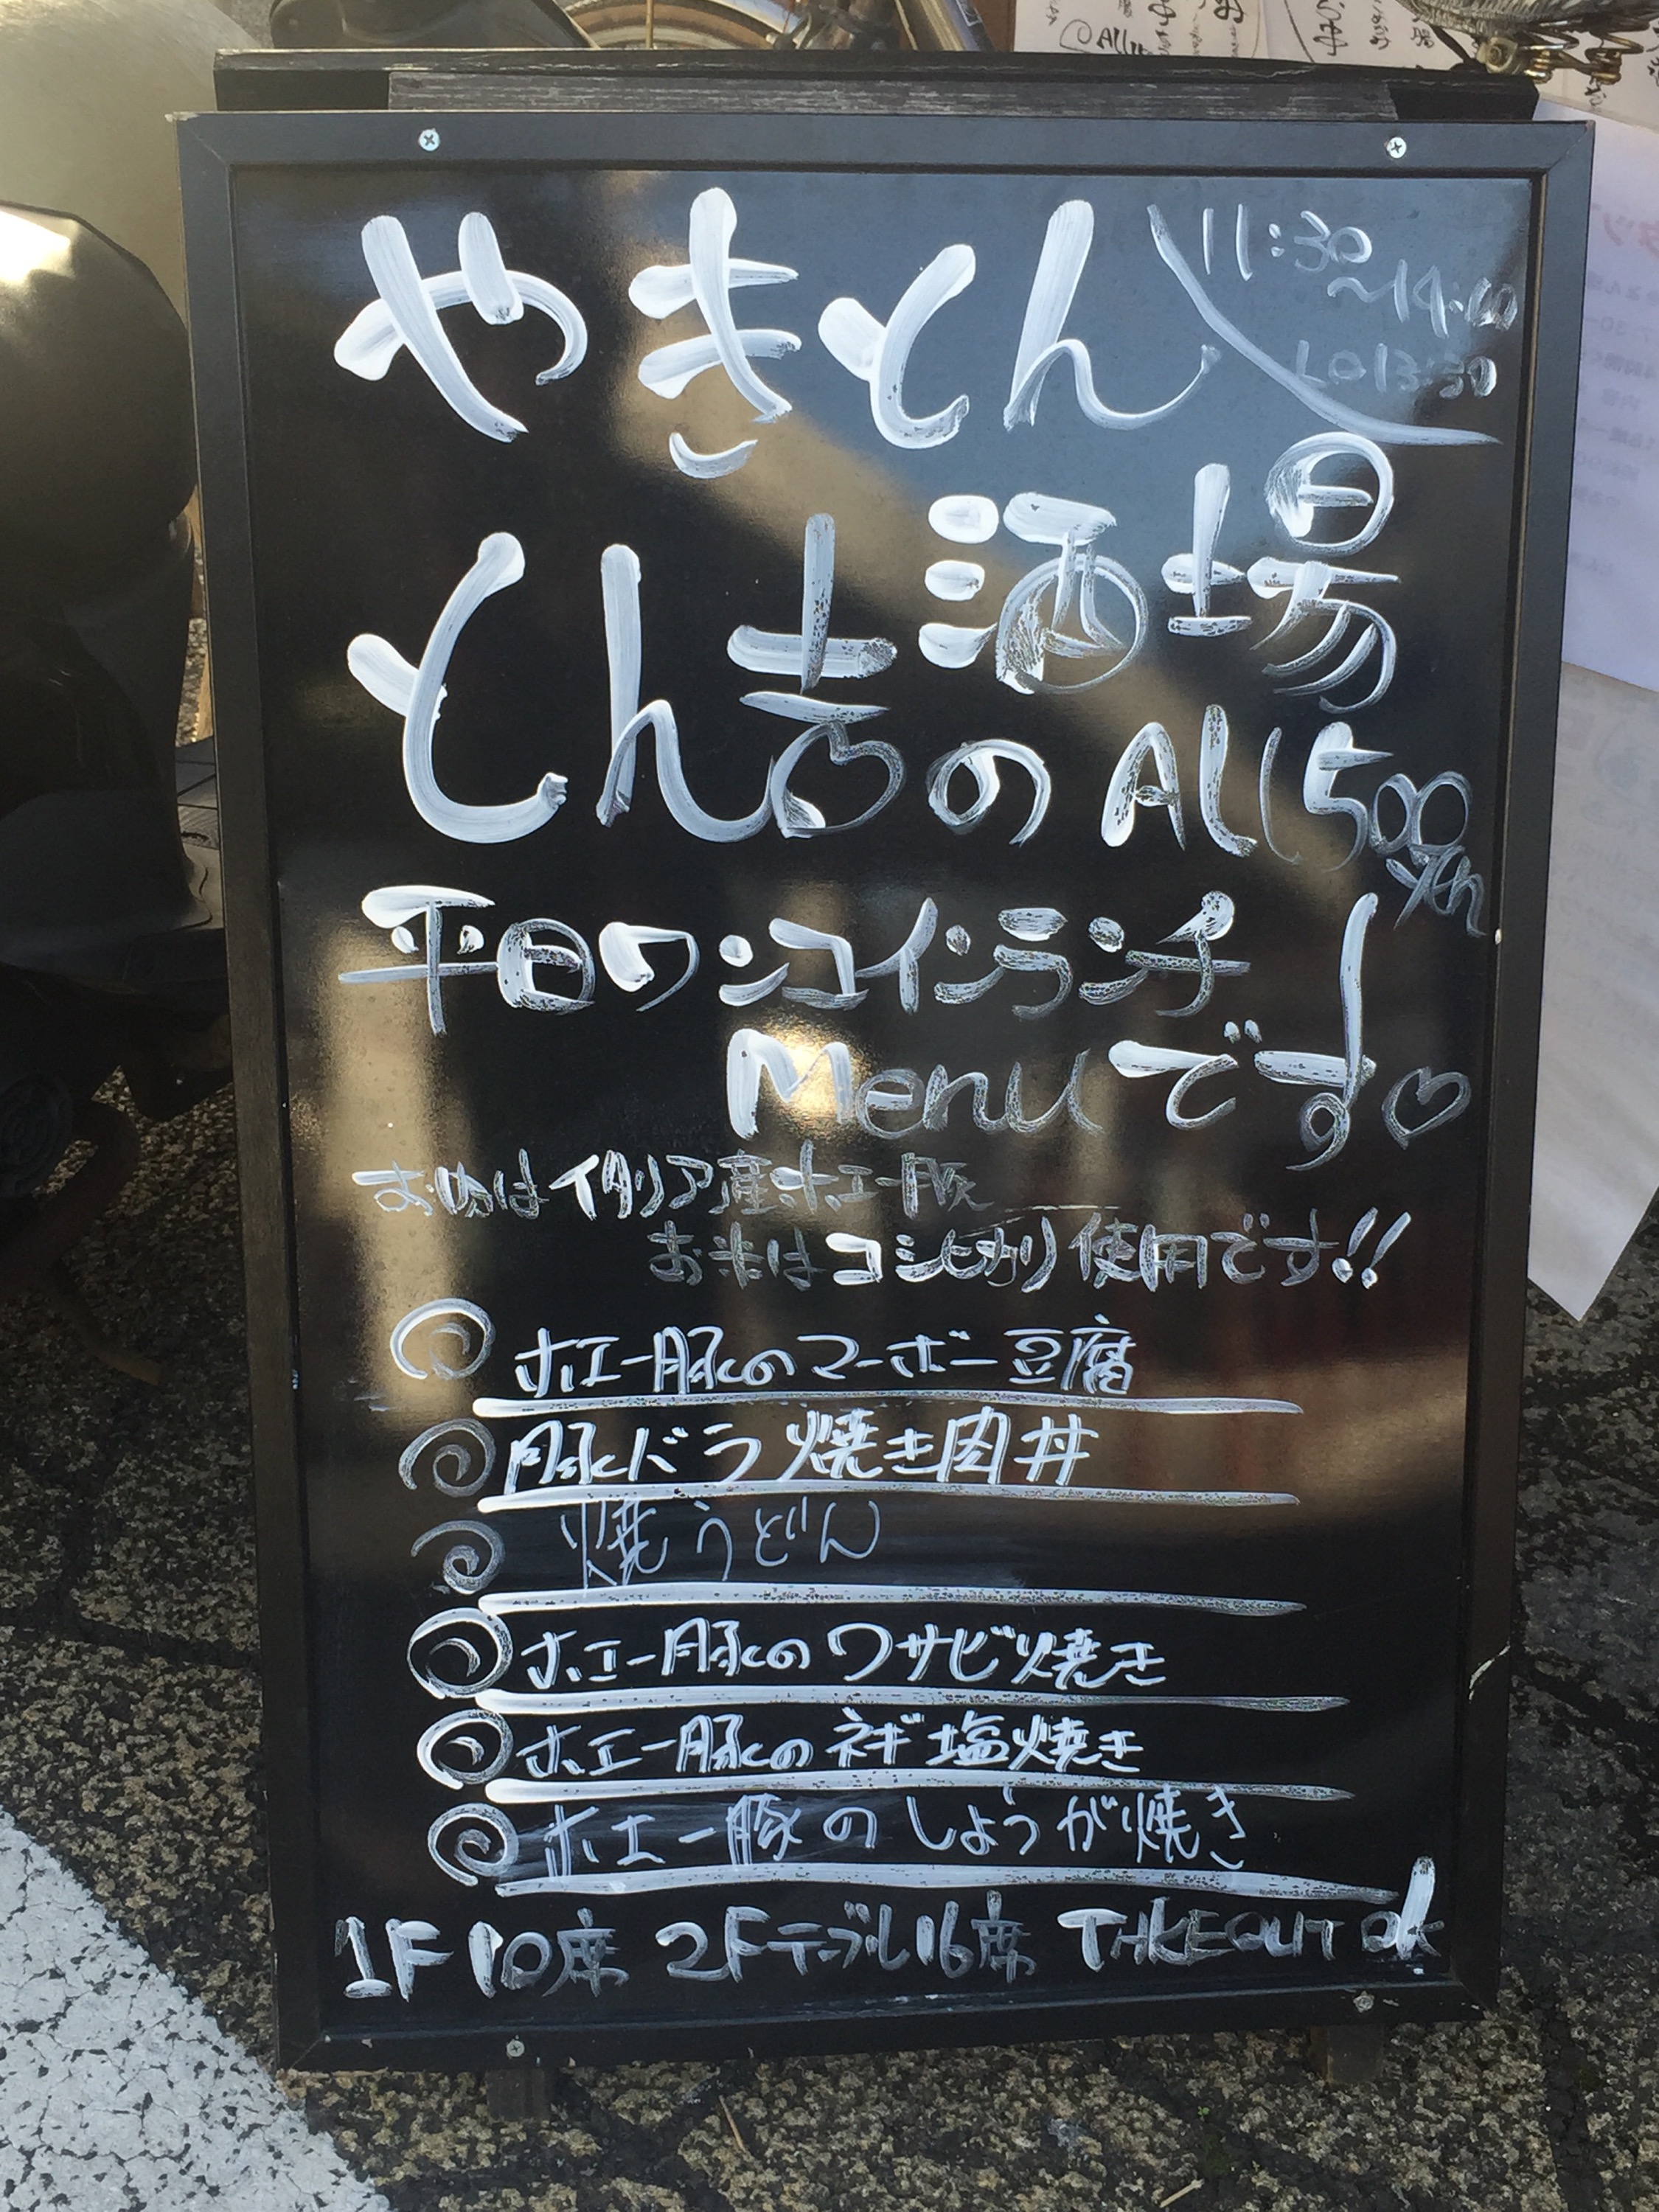 やきとん
11:30
~14:00
LO13:30
酒場
とん吉の All 500
yen
平日ワンコインランチ
Menuです!♡
お肉はイタリア産ホエー豚
お米はコシヒカリ使用です!!
ホエー豚のマーボー豆腐
豚バラ焼き肉丼
焼うどん
ホエー豚のワサビ焼き
ホエー豚のネギ塩焼き
ホエー豚のしょうが焼き
1F 10席 2Fテーブル16席 TAKEOUT OK